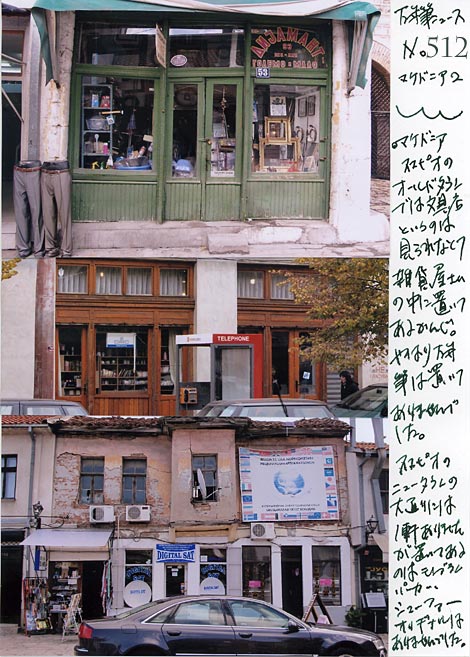 ДИЈАМАНТ
53
TELEPHONE
DIGITAL SAT
万年筆ニュース
No.512
マケドニア2
○マケドニア
スコピエの
オールドタウン
では文具店
というのは
見られなくて
雑貨屋さん
の中に置いて
あるかんじ。
やはり万年
筆は置いて
ありませんで
した。
スコピエの
ニュータウンの
大通りには
1軒ありました
が置いてある
のはモンブラン
パーカー
シェーファー
オリヂナルは
ありませんでした。